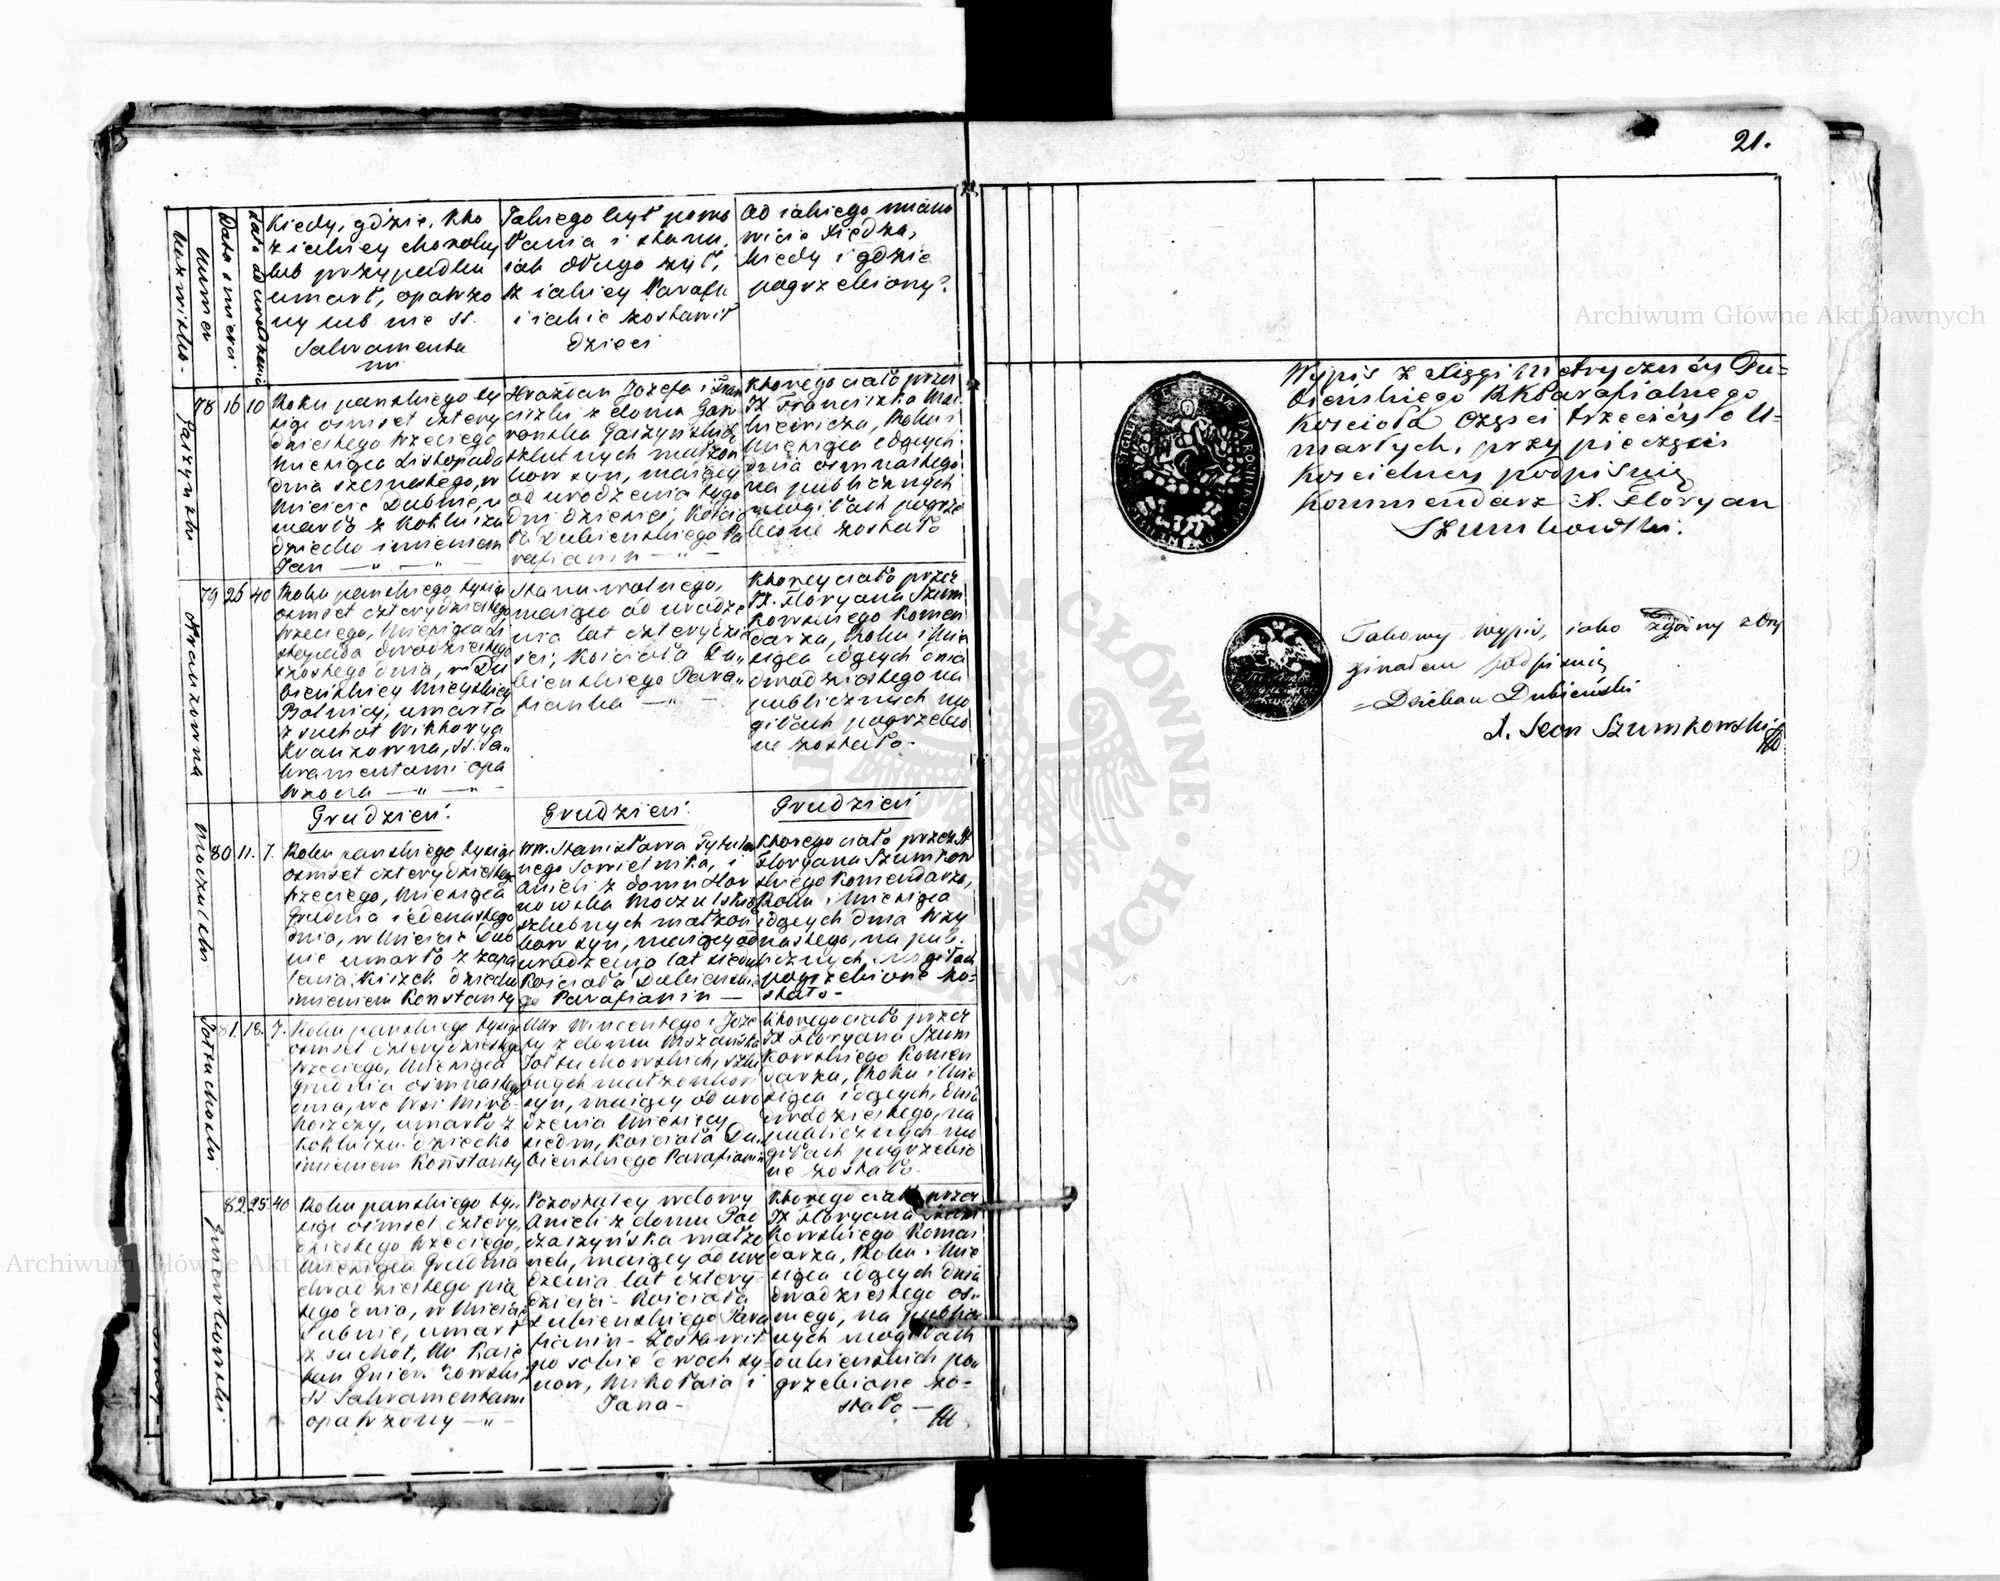 21.
Nazwisko
Numer
Data śmierci
Lata od urodzenia
Kiedy, gdzie, kto
z iakiey choroby
lub przypadku
umarł, opatrzo
ny lub nie SS.
Sakramenta
mi
Iakiego był powo
łania i stanu,
iak długo żył,
z iakiey Parafii
i iakie zostawił
dzieci
Od iakiego miano
wicie Xiędza,
kiedy i gdzie
pogrzebiony?
78 16 10
Roku pańskiego ty
siąc osmset cztery
dziestego trzeciego
Miesiąca Listopada
dnia szesnastego, w
Mieście Dubnie, u
marło z Kokluszu
dziecko imieniem
Jan — " — " —
Hrażdan Józefa i Fran
ciszki z domu Gaw
rońska Gaszyńskich
szlubnych małżon
kow syn, maiący
od urodzenia tygo
dni dziesięć, Kościo
ła Dubienskiego Pa
rafianin — " —
Ktorego ciało przez
JX Franciszka
Roku i
Miesiąca idących
dnia osmnastego
na publicznych
mogiłach pogrze
bione zostało
79 26 40
Roku pańskiego tysiąc
osmset czterydziestego
trzeciego, Miesiąca Li
stopada dwudziestego
szostego dnia, w Du
bieńskiey Mieyskiey
Bolnicy, umarła
z suchot Wiktorya
Kranzowna, SS. Sa„
kramentami opa
trzona — " — " —
Stanu wolnego,
maiąca od urodze
nia lat czterydzie
ści, Kościoła Du„
bienskiego Para„
fianka — " —
Ktorey ciało przez
JX. Floryana Szum
kowskiego Komen
darza, Roku i Mie
siąca idących dnia
dwudziestego na
publicznych mo
giłach pogrzebio
ne zostało -
Grudzień.
Grudzień.
Grudzień
80 11. 7.
Roku pańskiego tysiąc
osmset czterydziestego
trzeciego, Miesiąca
Grudnia iedenastego
dnia, w Mieście Dub
nie umarło z zapa
lenia Kiszek dziecko
imieniem Konstanty
WW. Stanisława Tytular
nego Sowietnika, i
Anieli z domu Hor
nowska Moczulskich
szlubnych małżon
kow syn, maiący od
urodzenia lat siedm
Kościoła Dubienskie
go Parafianin —
Ktorego ciało przez JX
Floryana Szumkow
skiego Komendarza,
Roku i Miesiąca
idących dnia trzy
nastego, na pub-
licznych mogiłach
pogrzebione zo-
stało -
81. 18. 7.
Roku pańskiego tysiąc
osmset czterydziestego
trzeciego, Miesiąca
Grudnia osmnastego
dnia, we Wsi Miro-
hoszczy, umarło z
Kokluszu dziecko
imieniem Konstanty
WW. Wincentego i Józe
fy z domu Mszańska
Połtuchowskich, szlu
bnych małżonkow
syn, maiący od uro
dzenia Miesięcy
siedm, Kościoła Du„
bienskiego Parafianin
Ktorego ciało przez
JX Floryana Szum
kowskiego Komen
darza, Roku i Mie
siąca idących, dnia
dwudziestego, na
publicznych mo
giłach pogrzebio
ne zostało -
82 25. 40
Roku pańskiego ty„
siąc osmset cztery
dziestego trzeciego,
Miesiąca Grudnia
dwudziestego pią
tego dnia, w Mieście
Dubnie, umarł
z suchot, W Kaie
tan
SS. Sakramentami
opatrzony — " —
Pozostałey wdowy
Anieli z domu Pod
czaszyńska małżo
nek, maiący od uro
dzenia lat cztery-
dzieści - Kościoła
Dubienskiego Para
fianin - Zostawił
po sobie dwoch sy-
now, Mikołaia i
Jana -
Ktorego ciało przez
JX Floryana Szum
kowskiego Komen
darza, Roku i Mie
siąca idących dnia
dwudziestego os„
mego, na publicz
nych mogiłach
dubienskich po„
grzebione zo-
stało —
Wypis z Xięgi Metryczney Du=
bienskiego R K Parafialnego
Kościoła części trzeciey o U-
marłych, przy pieczęci
Kościelney podpisuię
Kommendarz X. Floryan
Szumkowski.
Takowy wypis, iako zgodny z Ory
ginałem podpisuię
= Dziekan Dubieński
X. Leon Szumkowski
Archiwum Główne Akt Dawnych
Archiwum Główne Akt Dawnych